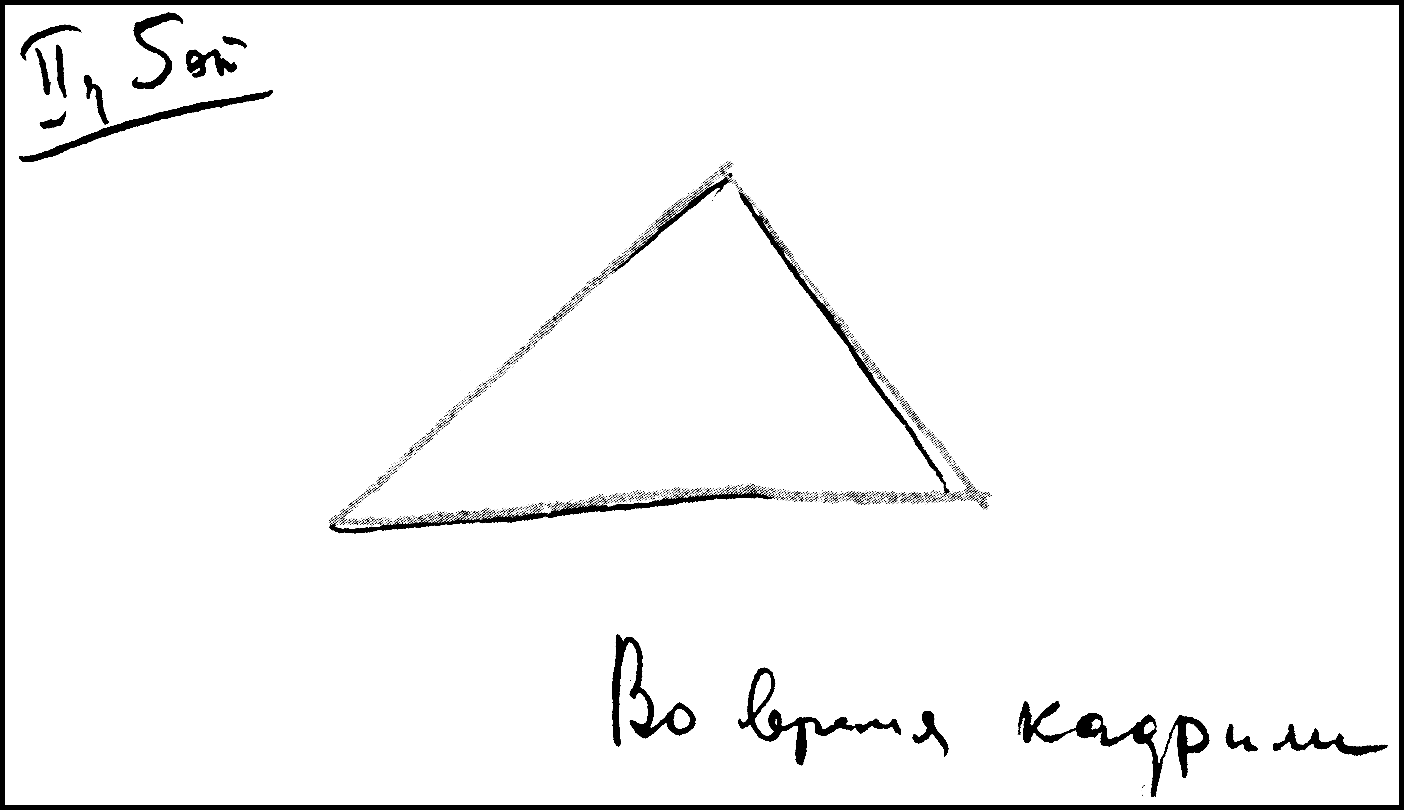 II ч 5 эп
Во время кадрили